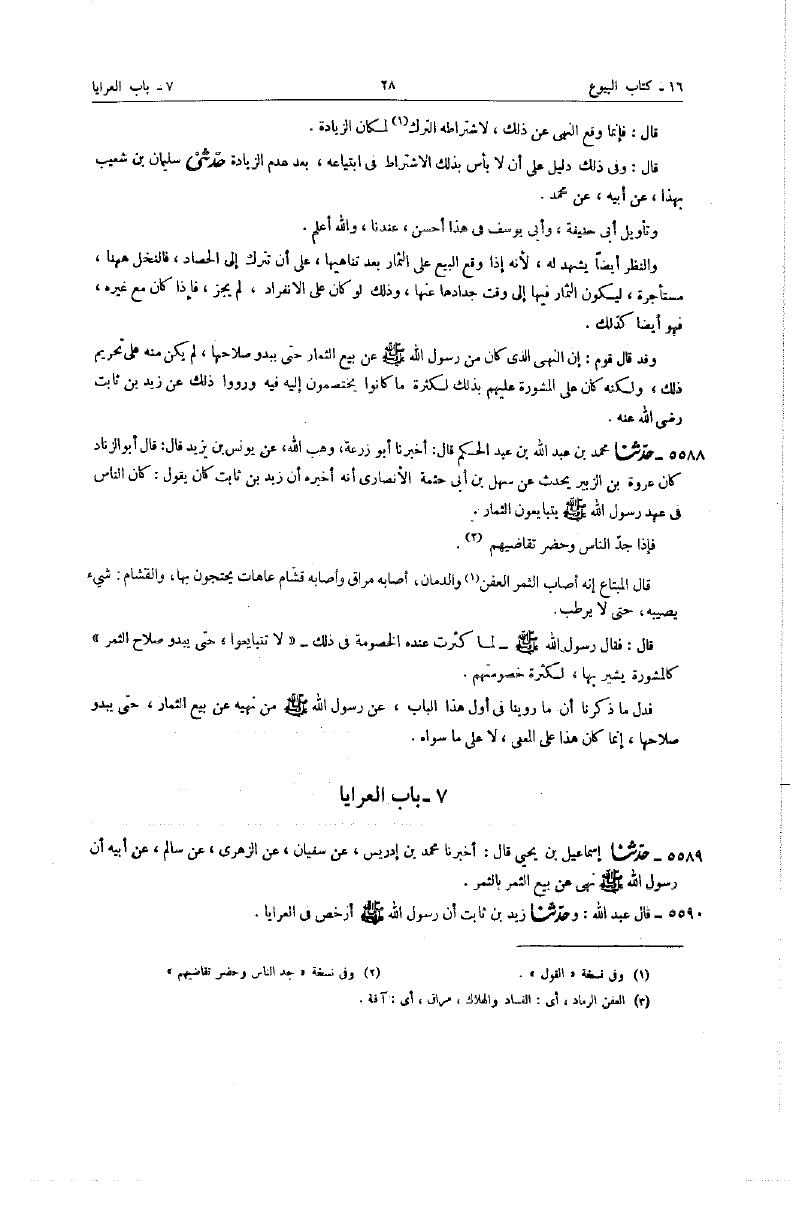 ١٦ ـ كتاب البيوع ٢٨ ٧ ـ باب العرايا
قال : فإنما وقع النهى عن ذلك ، لاشتراطه الترك(١) لمكان الزيادة .
قال : وفى ذلك دليل على أن لا بأس بذلك الاشتراط فى ابتياعه ، بعد عدم الزيادة حدثنى سليمان بن شعيب
بهذا ، عن أبيه ، عن محمد .
وتأويل أبى حنيفة ، وأبى يوسف فى هذا أحسن ، عندنا ، والله أعلم .
والنظر أيضاً يشهد له ، لأنه إذا وقع البيع على الثمار بعد تناهيها ، على أن تترك إلى الحصاد ، فالنخل ههنا ،
مستأجرة ، ليكون الثمار فيها إلى وقت جدادها عنها ، وذلك لو كان على الانفراد ، لم يجز ، فإذا كان مع غيره ،
فهو أيضا كذلك .
وقد قال قوم : إن النهى الذى كان من رسول الله ﷺ عن بيع الثمار حتى يبدو صلاحها ، لم يكن منه على تحريم
ذلك ، ولكنه كان على المشورة عليهم بذلك لكثرة ما كانوا يختصمون إليه فيه ورووا ذلك عن زيد بن ثابت
رضى الله عنه .
٥٥٨٨ ـ حدثنا محمد بن عبد الله بن عبد الحكم قال: أخبرنا أبو زرعة، وهب الله، عن يونس بن يزيد قال: قال أبو الزناد
كان عروة بن الزبير يحدث عن سهل بن أبى حثمة الأنصارى أنه أخبره أن زيد بن ثابت كان يقول : كان الناس
فى عهد رسول الله ﷺ يتبايعون الثمار .
فإذا جدّ الناس وحضر تقاضيهم (٢) .
قال المبتاع إنه أصاب الثمر العفن(١) والدمان، أصابه مراق وأصابه قشام عاهات يحتجون بها، والقشام : شيء
يصيبه، حتى لا يرطب.
قال : فقال رسول الله ﷺ ـ لما كثرت عنده الخصومة فى ذلك ـ « لا تتبايعوا ، حتى يبدو صلاح الثمر »
كالمشورة يشير بها ، لكثرة خصومتهم .
فدل ما ذكرنا أن ما روينا فى أول هذا الباب ، عن رسول الله ﷺ من نهيه عن بيع الثمار ، حتى يبدو
صلاحها ، إنما كان هذا على المعنى ، لا على ما سواه .
٧ ـ باب العرايا
٥٥٨٩ ـ حدثنا إسماعيل بن يحيى قال : أخبرنا محمد بن إدريس ، عن سفيان ، عن الزهرى ، عن سالم ، عن أبيه أن
رسول الله ﷺ نهى عن بيع الثمر بالثمر .
٥٥٩٠ ـ قال عبد الله : وحدثنا زيد بن ثابت أن رسول الله ﷺ أرخص فى العرايا .
(١) وفى نسخة « القول » . (٢) وفى نسخة « جد الناس وحضر تقاضيهم »
(٣) العفن الرماد ، أى : الفساد والهلاك ، مراق ، أى : آفة .